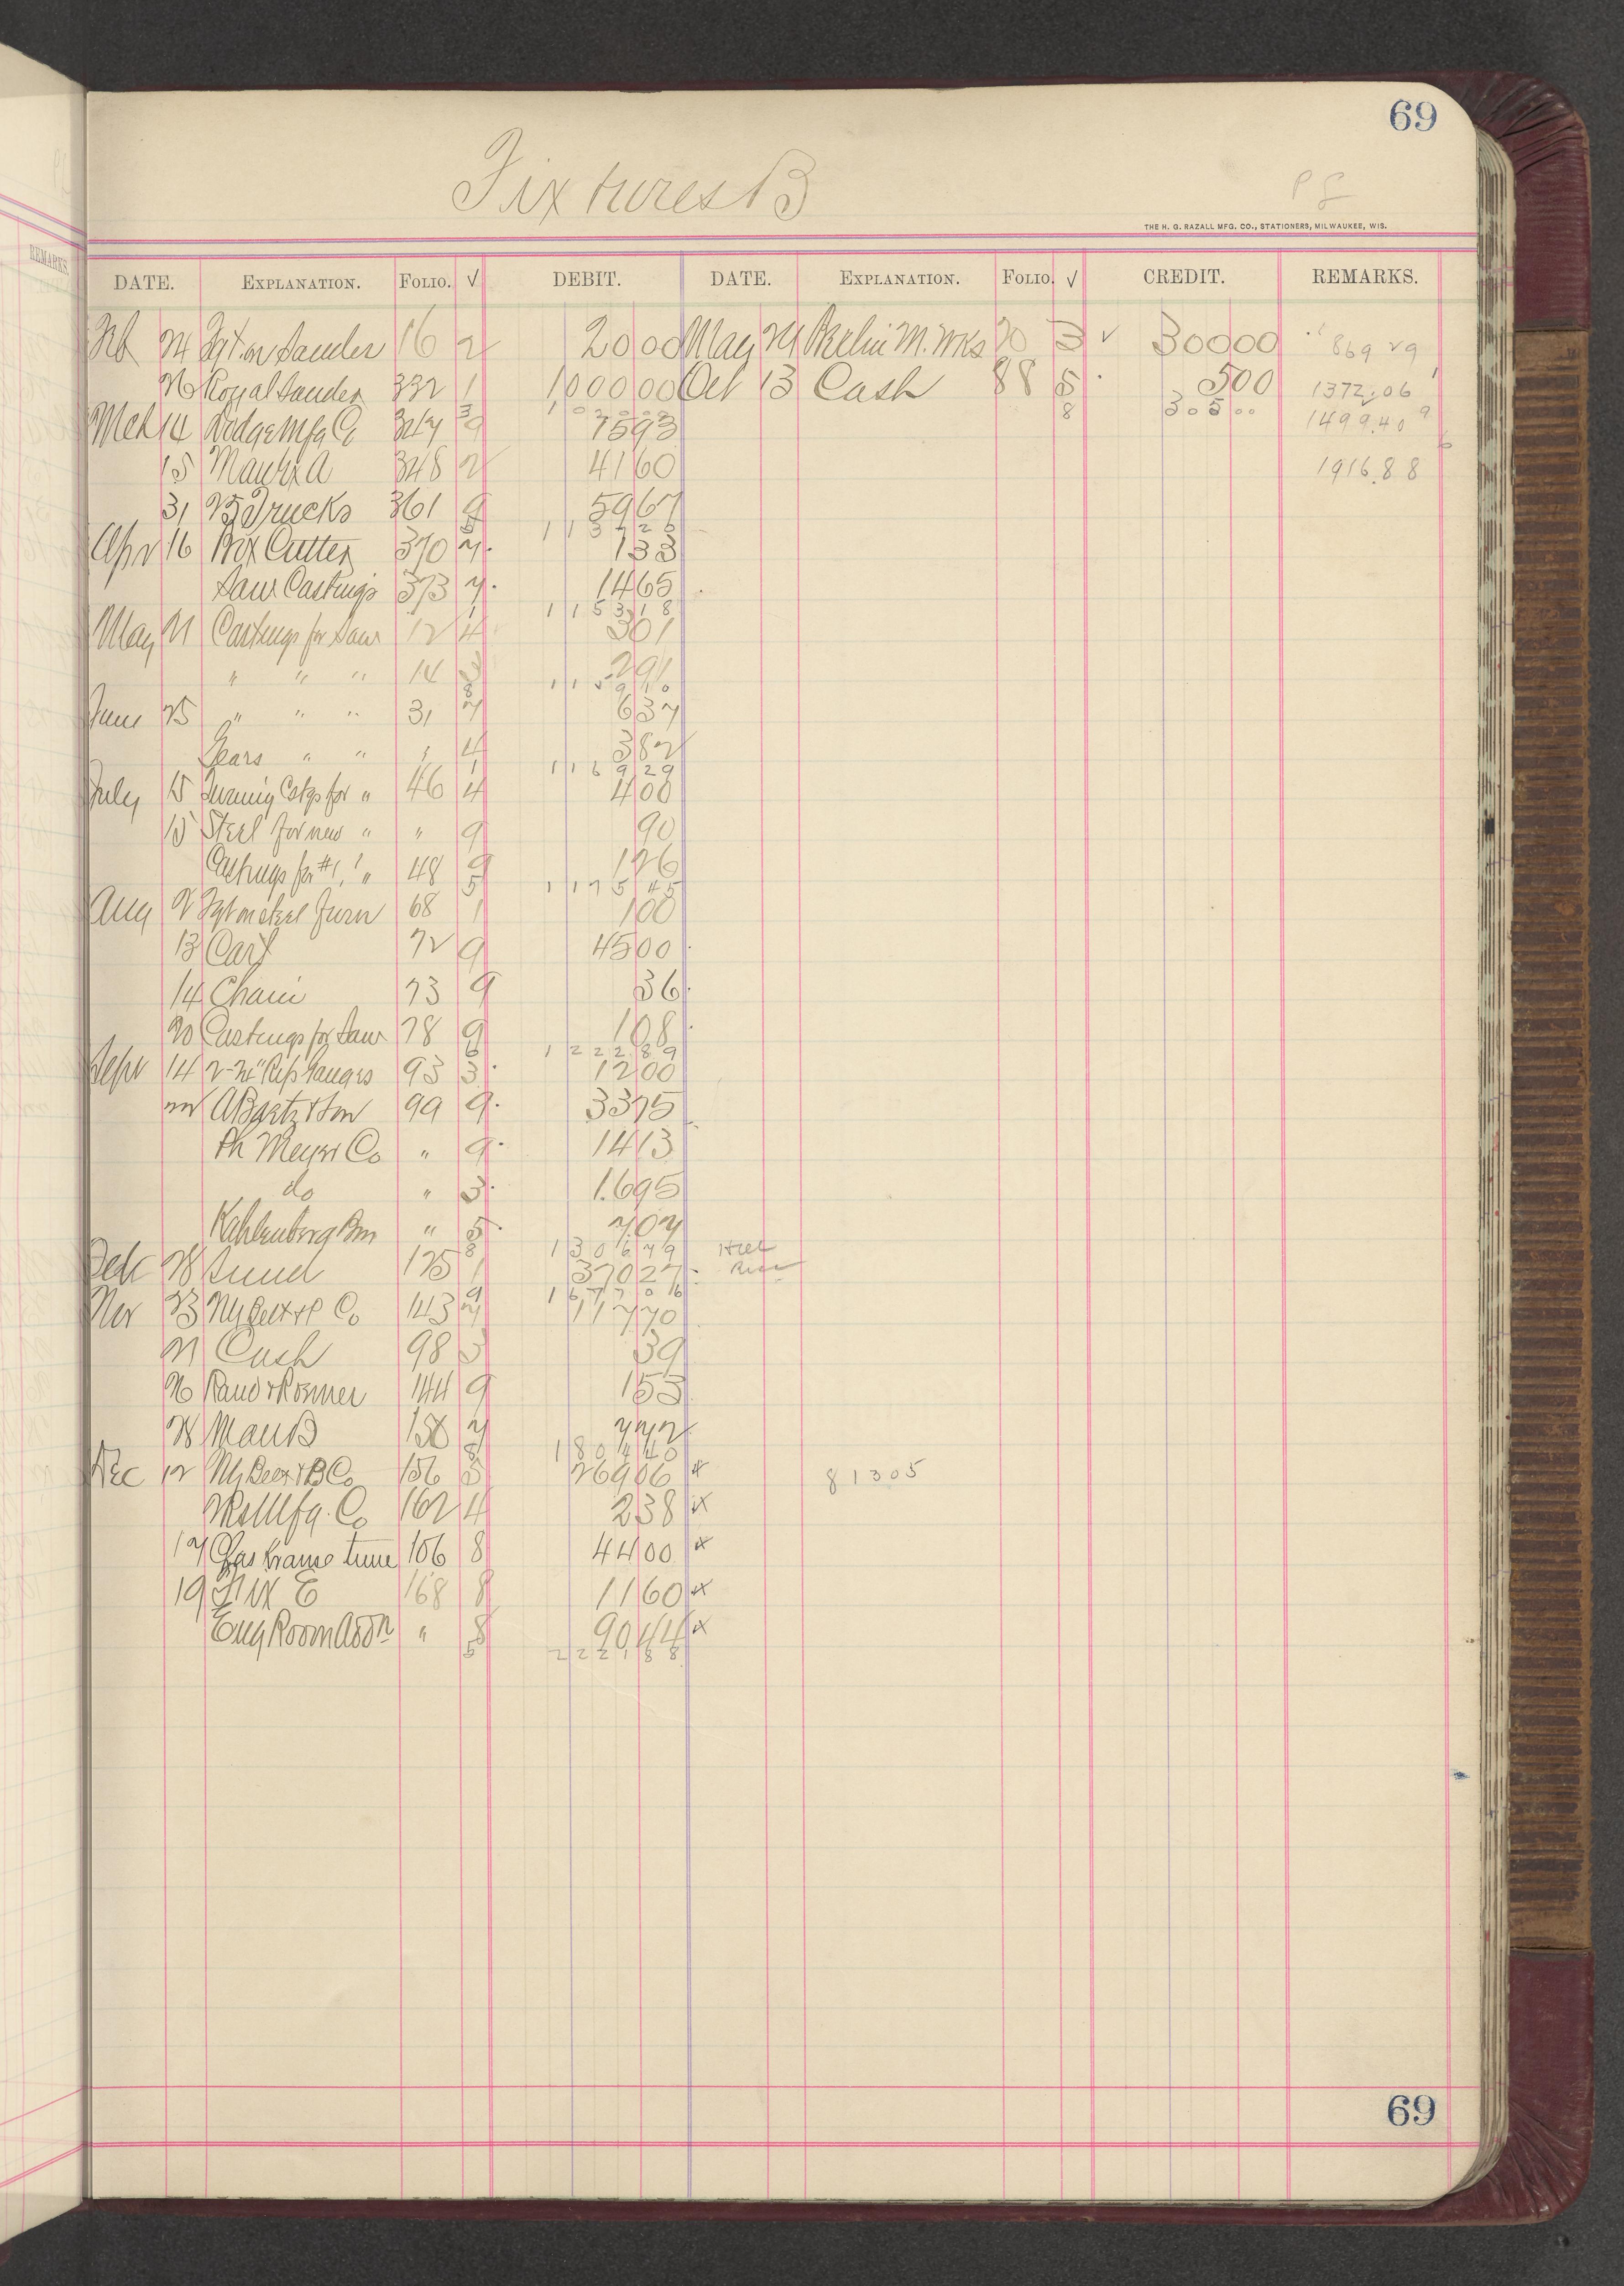 69
Fixtures B
THE H. G. RAZALL MFG. CO., STATIONERS, MILWAUKEE, WIS.
REMARKS.
DATE. EXPLANATION. FOLIO. √ DEBIT. DATE. EXPLANATION. FOLIO. √ CREDIT. REMARKS.
Feb 24 Fgt. on Sander 16 2 2000 May 24 Berlin M. Wks 20 3 √ 30000 869 29
26 Royal Sander 332 1 100000 Oct 13 Cash 88 5 500 1372.06
3 102000 8 30500
Mch 14 Dodge Mfg Co 347 9 7593 1499.40
15 Manfr A 348 2 4160 1916.88
31 25 Trucks 361 9 5967
5 113720
Apr 16 Box Cutter 370 7 133
Saw Castings 373 7 1465
1 115318
May 21 Castings for Saw 12 4 301
" " " 14 3 291
8 115910
June 25 " " " 31 7 637
Gears " " " 4 382
1 116929
July 15 Turning Cstgs for " 46 4 400
15 Steel for new " " 9 90
Castings for #1, " 48 9 126
5 117545
Aug 2 Fgt on steel Furn 68 1 100
13 Cart 72 9 4500
14 Chain 73 9 36
20 Castings for Saw 78 9 108
6 122289
Sept 14 2-24" Rip Gauges 93 3 1200
22 A Bartz & Son 99 9 3375
Ph Meyer Co " 9 1413
do " 3 1.695
Kahlenberg Bros " 5 707
8 130679
Oct 28 Sund 125 1 37027
9 167706
Nov 23 NY Belt & P Co 143 7 11770
21 Cash 98 3 39
26 Rand & Roemer 144 9 153
28 Man B 150 7 772
8 180440
Dec 12 NY Belt & P Co 156 5 26906 x 81305
Mfg. Co 162 4 238 x
17 Gas 106 8 4400 x
19 Fix E 168 8 1160 x
Eng Room Addn " 8 9044 x
5 222188
69